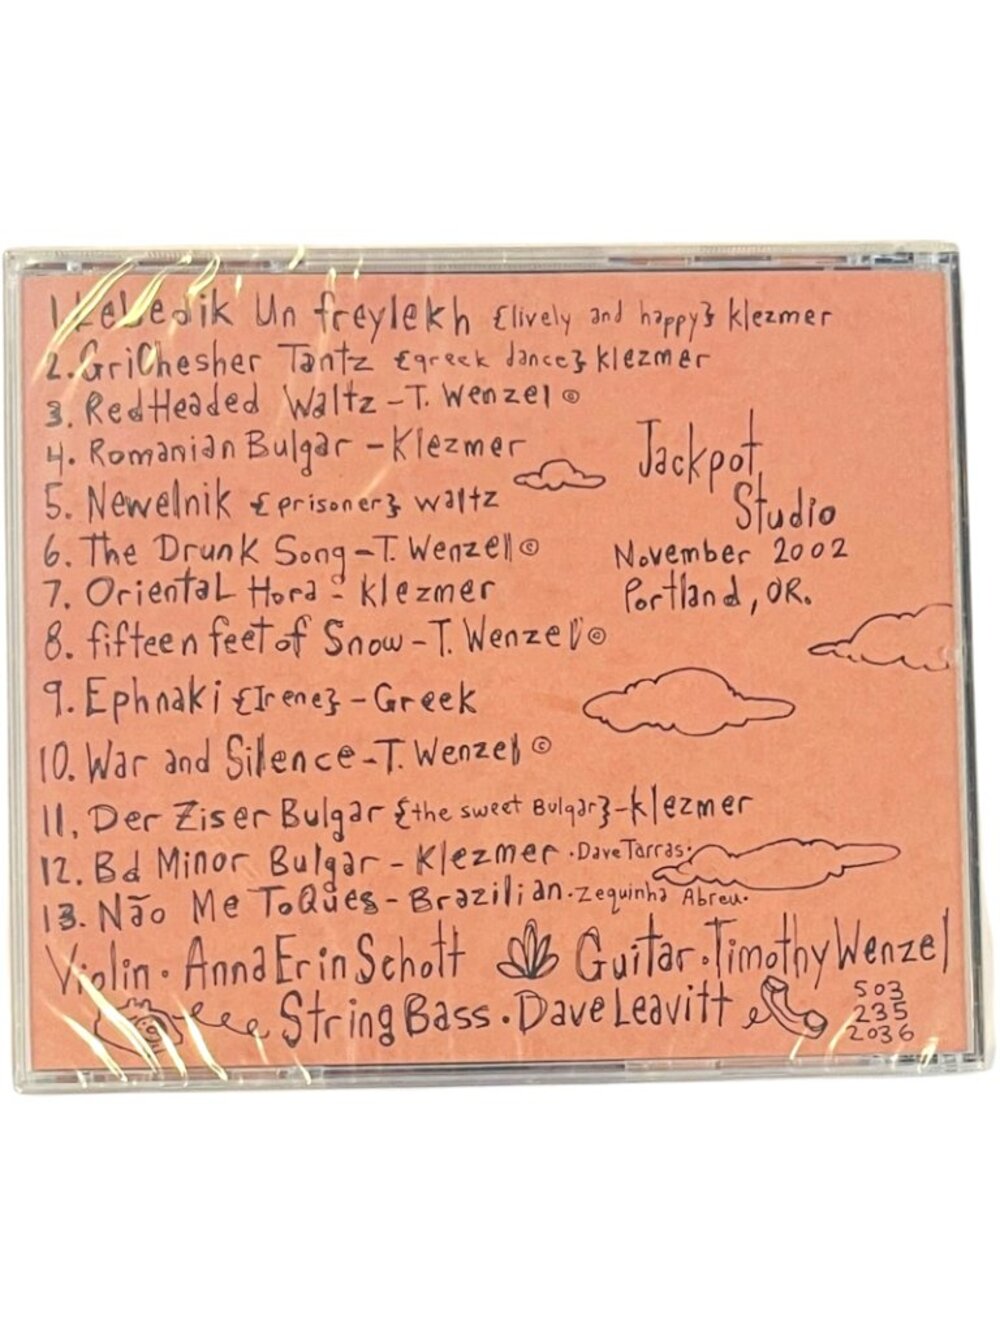 1. Lebedik Un freylekh {lively and happy} Klezmer
2. GriChesher Tantz {greek dance} Klezmer
3. RedHeaded Waltz - T. Wenzel ©
4. Romanian Bulgar - Klezmer
5. Newelnik {prisoner} waltz
6. The Drunk Song - T. Wenzel ©
7. Oriental Hora - Klezmer
8. fifteen feet of Snow - T. Wenzel ©
9. Ephnaki {Irene} - Greek
10. War and Silence - T. Wenzel ©
11. Der Ziser Bulgar {the sweet Bulgar} - Klezmer
12. Bd Minor Bulgar - Klezmer · Dave Tarras ·
13. Não Me Toques - Brazilian · Zequinha Abreu ·
Jackpot
Studio
November 2002
Portland, OR.
Violin · Anna Erin Schott Guitar · Timothy Wenzel
String Bass · Dave Leavitt
503
235
2036